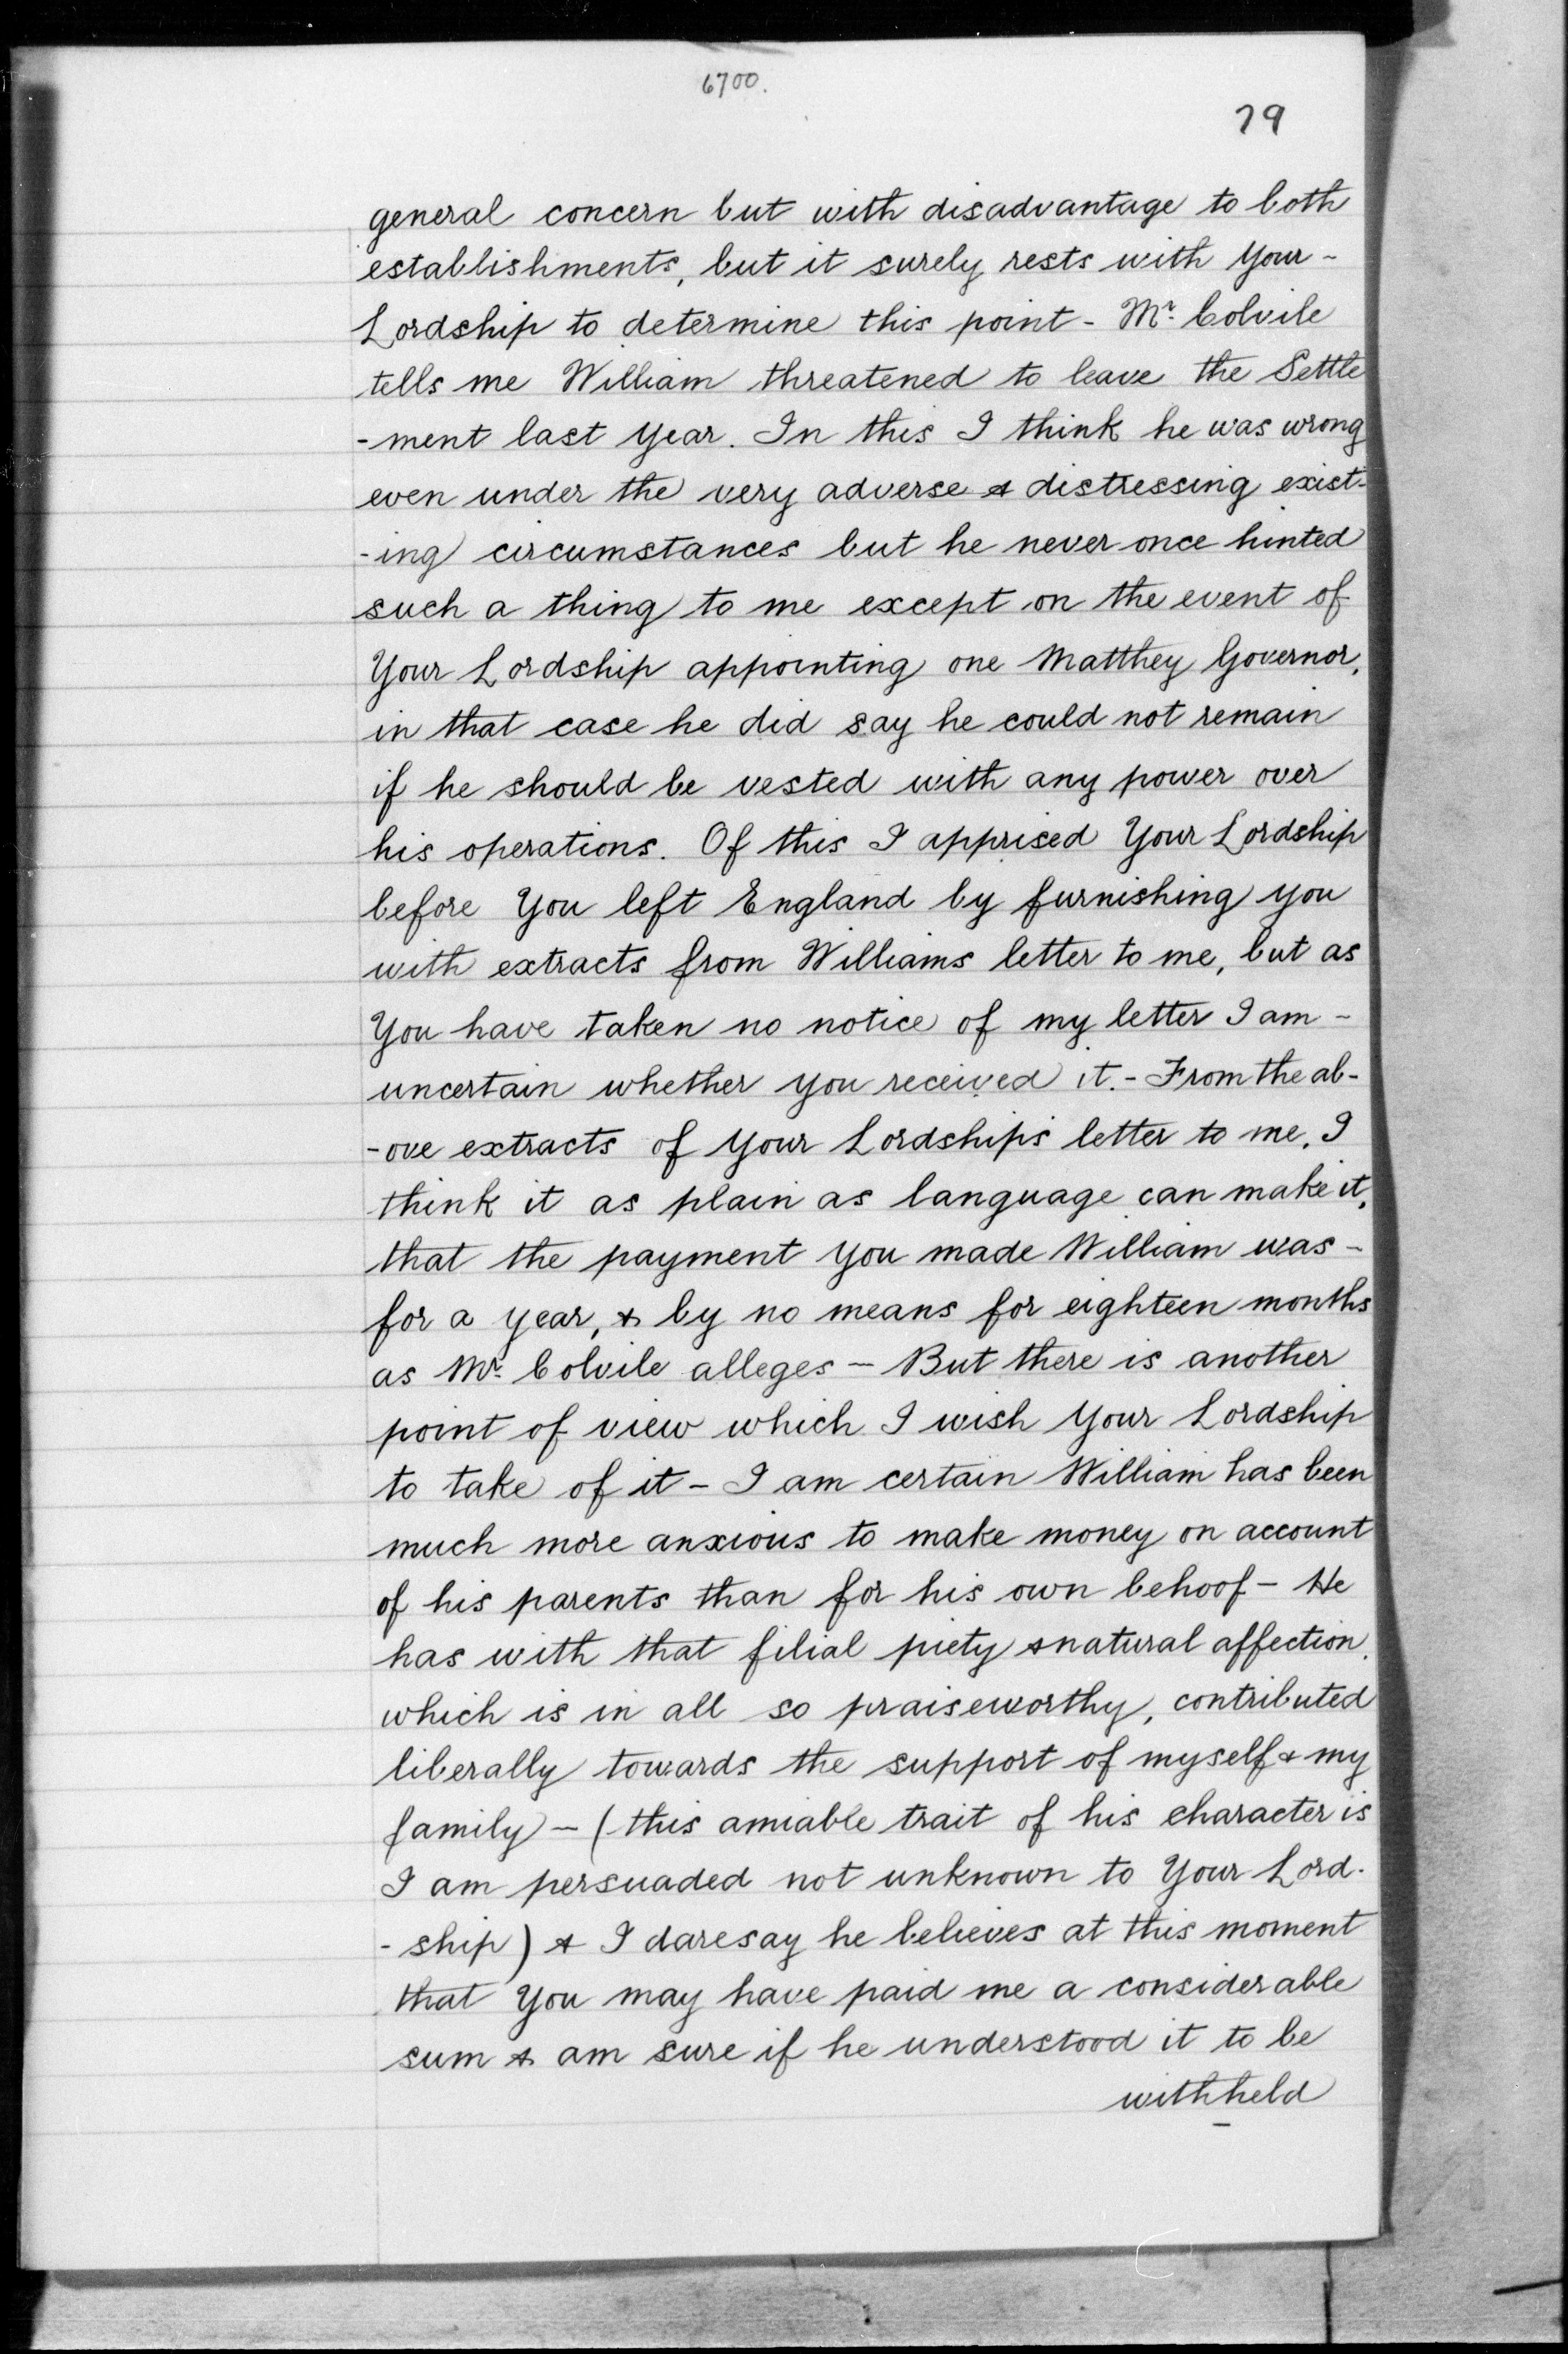 6700.
79
general concern but with disadvantage to both
establishments, but it surely rests with Your -
Lordship to determine this point - Mr. Colvile
tells me William threatened to leave the Settle
-ment last Year. In this I think he was wrong
even under the very adverse & distressing exist-
-ing circumstances but he never once hinted
such a thing to me except on the event of
Your Lordship appointing one Matthey Governor,
in that case he did say he could not remain
if he should be vested with any power over
his operations. Of this I apprised Your Lordship
before You left England by furnishing you
with extracts from Williams letter to me, but as
You have taken no notice of my letter I am -
uncertain whether you received it. - From the ab-
-ove extracts of Your Lordships letter to me, I
think it as plain as language can make it,
that the payment You made William was -
for a year, & by no means for eighteen months
as Mr. Colvile alleges - But there is another
point of view which I wish Your Lordship
to take of it - I am certain William has been
much more anxious to make money on account
of his parents than for his own behoof - He
has with that filial piety & natural affection,
which is in all so praiseworthy, contributed
liberally towards the support of myself & my
family - (this amiable trait of his character is
I am persuaded not unknown to Your Lord-
-ship) & I daresay he believes at this moment
that You may have paid me a considerable
sum & am sure if he understood it to be
withheld